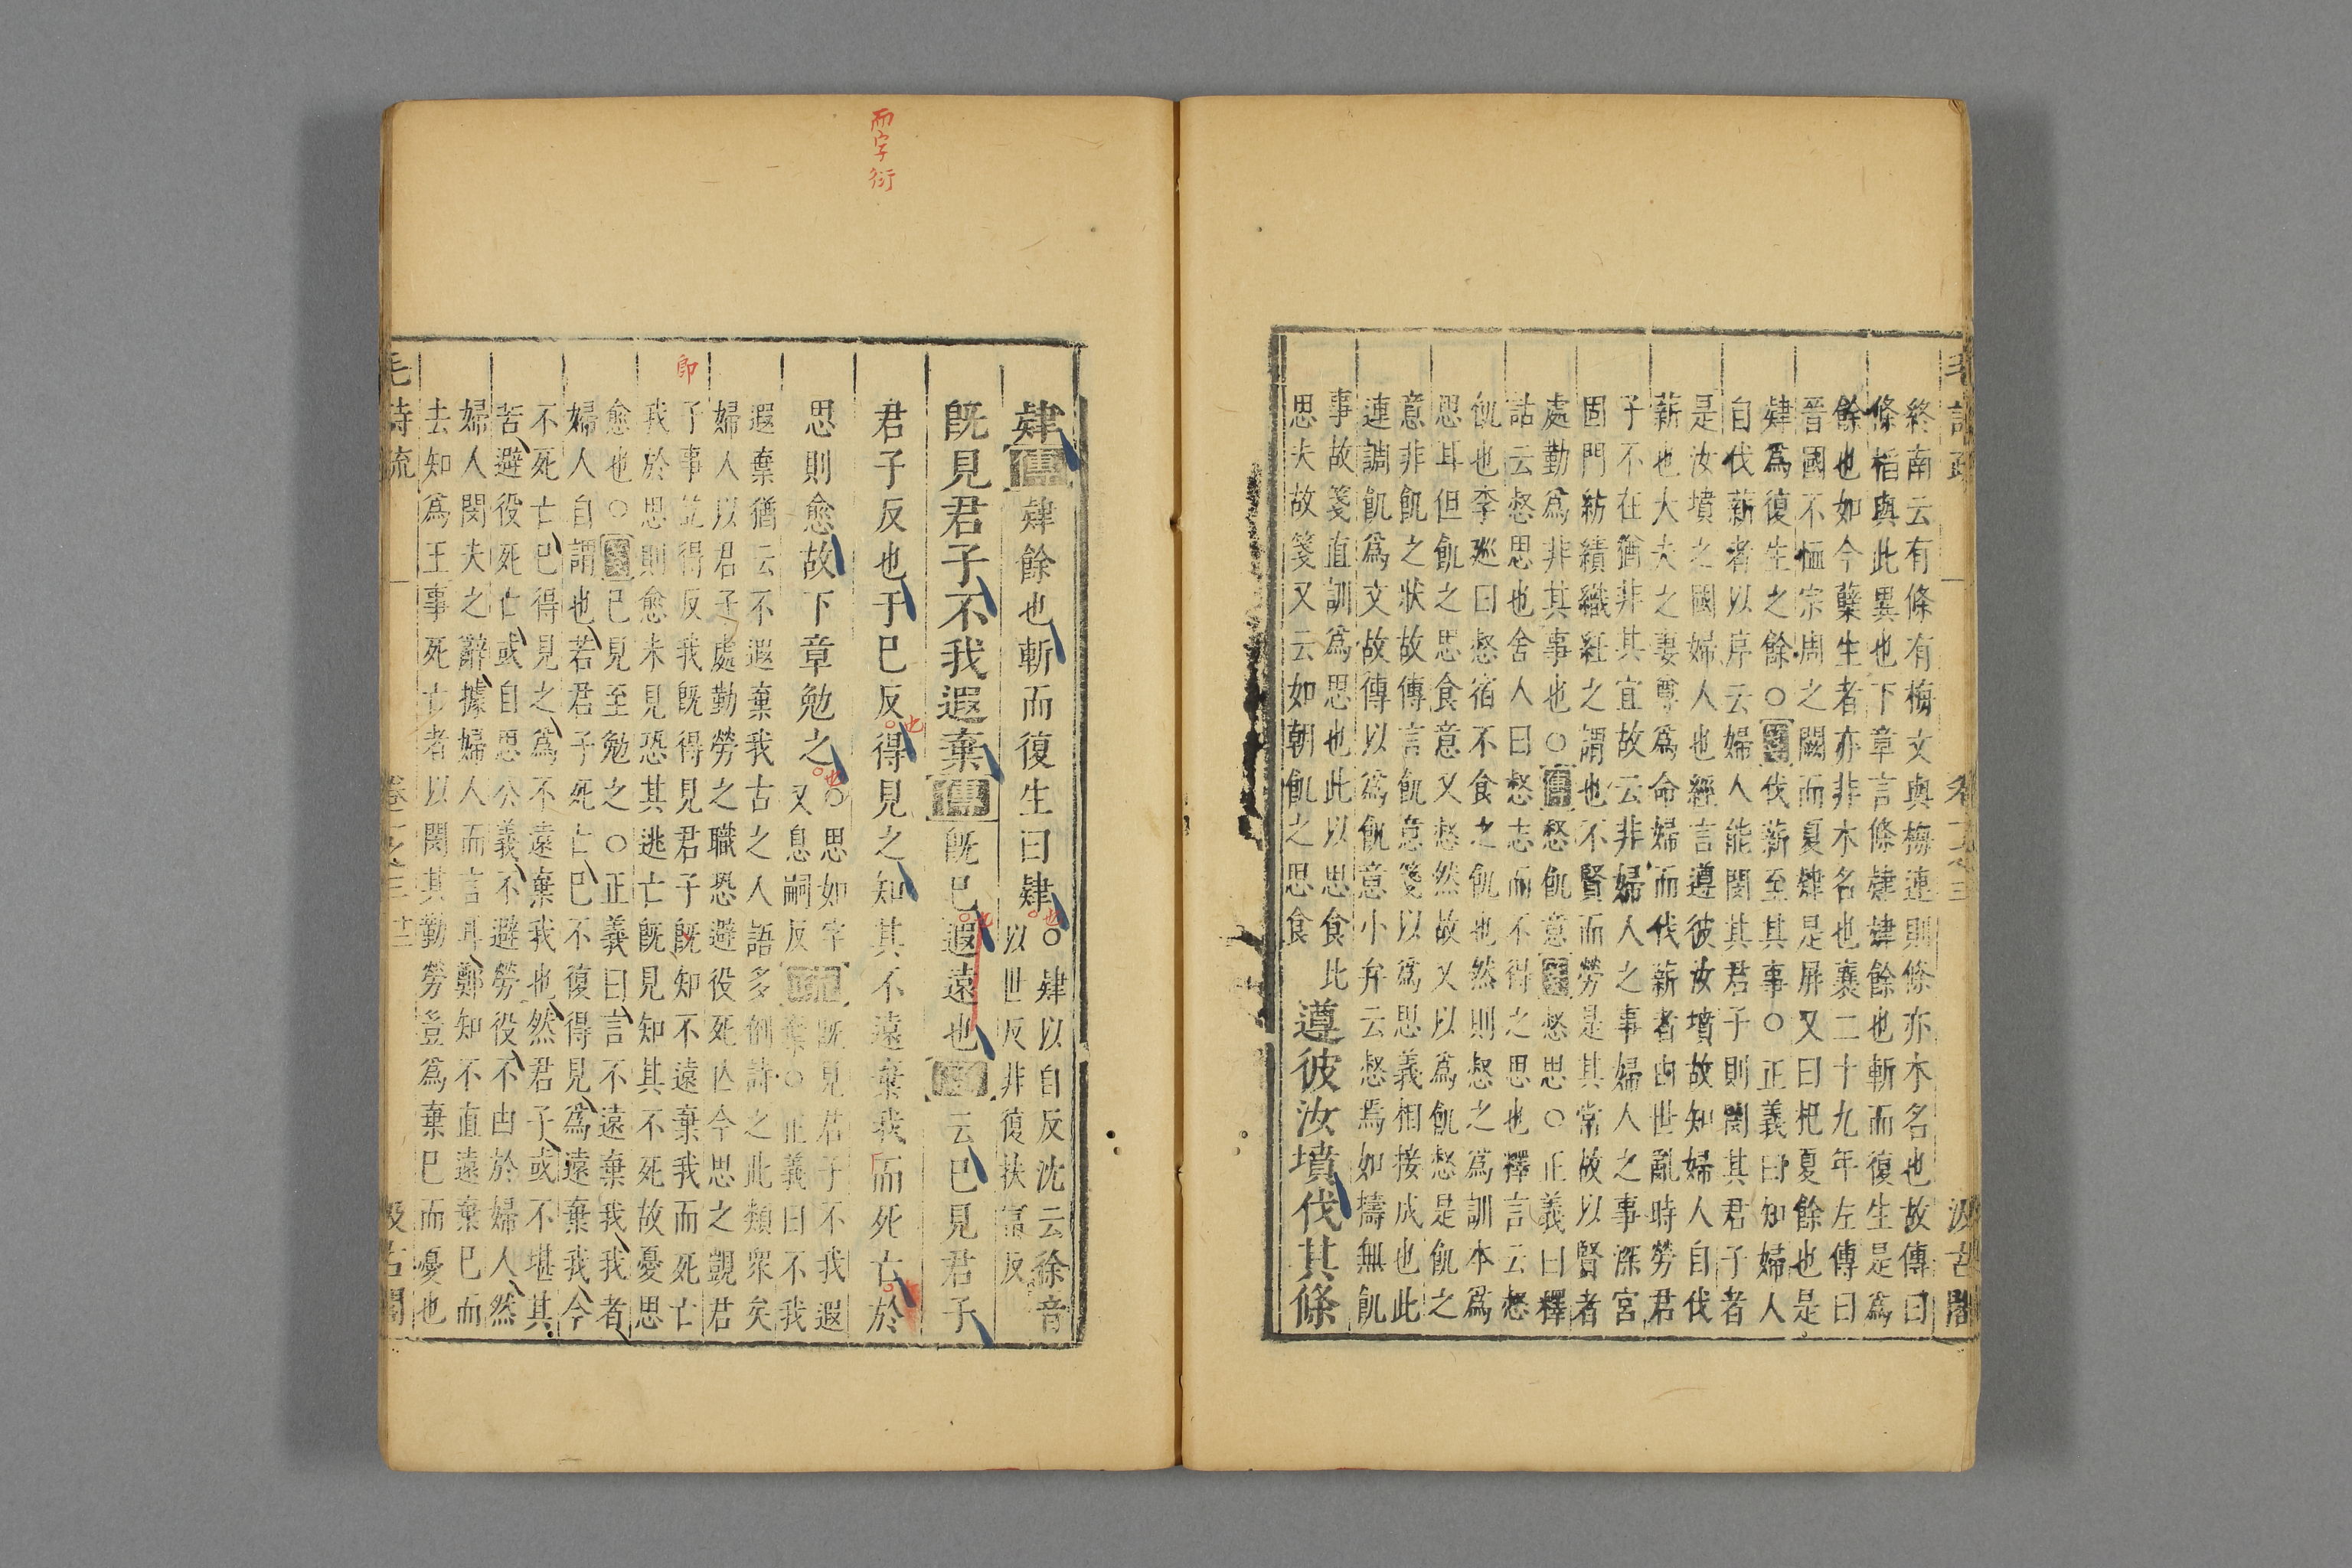 毛詩疏 卷一之三 汲古閣
終南云有條有梅文與梅連則條亦木名也故傳曰
條槄與此異也下章言條肄肄餘也斬而復生是爲
餘也如今蘖生者亦非木名也襄二十九年左傳曰
晉國不恤宗周之闕而夏肄是屏又曰杞夏餘也是
肄爲復生之餘○箋伐薪至其事○正義曰知婦人
自伐薪者以序云婦人能閔其君子則閔其君子者
是汝墳之國婦人也經言遵彼汝墳故知婦人自伐
薪也大夫之妻尊爲命婦而伐薪者由世亂時勞君
子不在猶非其宜故云非婦人之事婦人之事深宮
固門紡績織紝之謂也不賢而勞是其常故以賢者
處勤爲非其事也○傳惄飢意箋惄思○正義曰釋
詁云惄思也舍人曰惄志而不得之思也釋言云惄
飢也李巡曰惄宿不食之飢也然則惄之爲訓本爲
思耳但飢之思食意又惄然故又以爲飢惄是飢之
意非飢之狀故傳言飢意箋以爲思義相接成也此
連調飢爲文故傳以爲飢意小弁云惄焉如擣無飢
事故箋直訓爲思也此以思食比
思夫故箋又云如朝飢之思食
遵彼汝墳伐其條
肄傳肄餘也斬而復生曰肄也○肄以自反沈云徐音
以世反非復扶富反
既見君子不我遐棄傳既已也遐遠也箋云已見君子
君子反也于已反也得見之知其不遠棄我而死亡於
思則愈故下章勉之也○思如字
又息嗣反疏既見君子不我遐
棄○正義曰不我
遐棄猶云不遐棄我古之人語多倒詩之此類衆矣
婦人以君子處勤勞之職恐避役死亡今思之覬君
子事訖得反我既得見君子既知不遠棄我而死亡
我於思則愈未見恐其逃亡既見知其不死故憂思
愈也○箋已見至勉之○正義曰言不遠棄我我者
婦人自謂也若君子死亡已不復得見爲遠棄我今
不死亡已得見之爲不遠棄我也然君子或不堪其
苦避役死亡或自思公義不避勞役不由於婦人然
婦人閔夫之辭據婦人而言耳鄭知不直遠棄已而
去知爲王事死亡者以閔其勤勞豈爲棄已而憂也
毛詩疏 卷一之三 十三 汲古閣
而字衍
卽